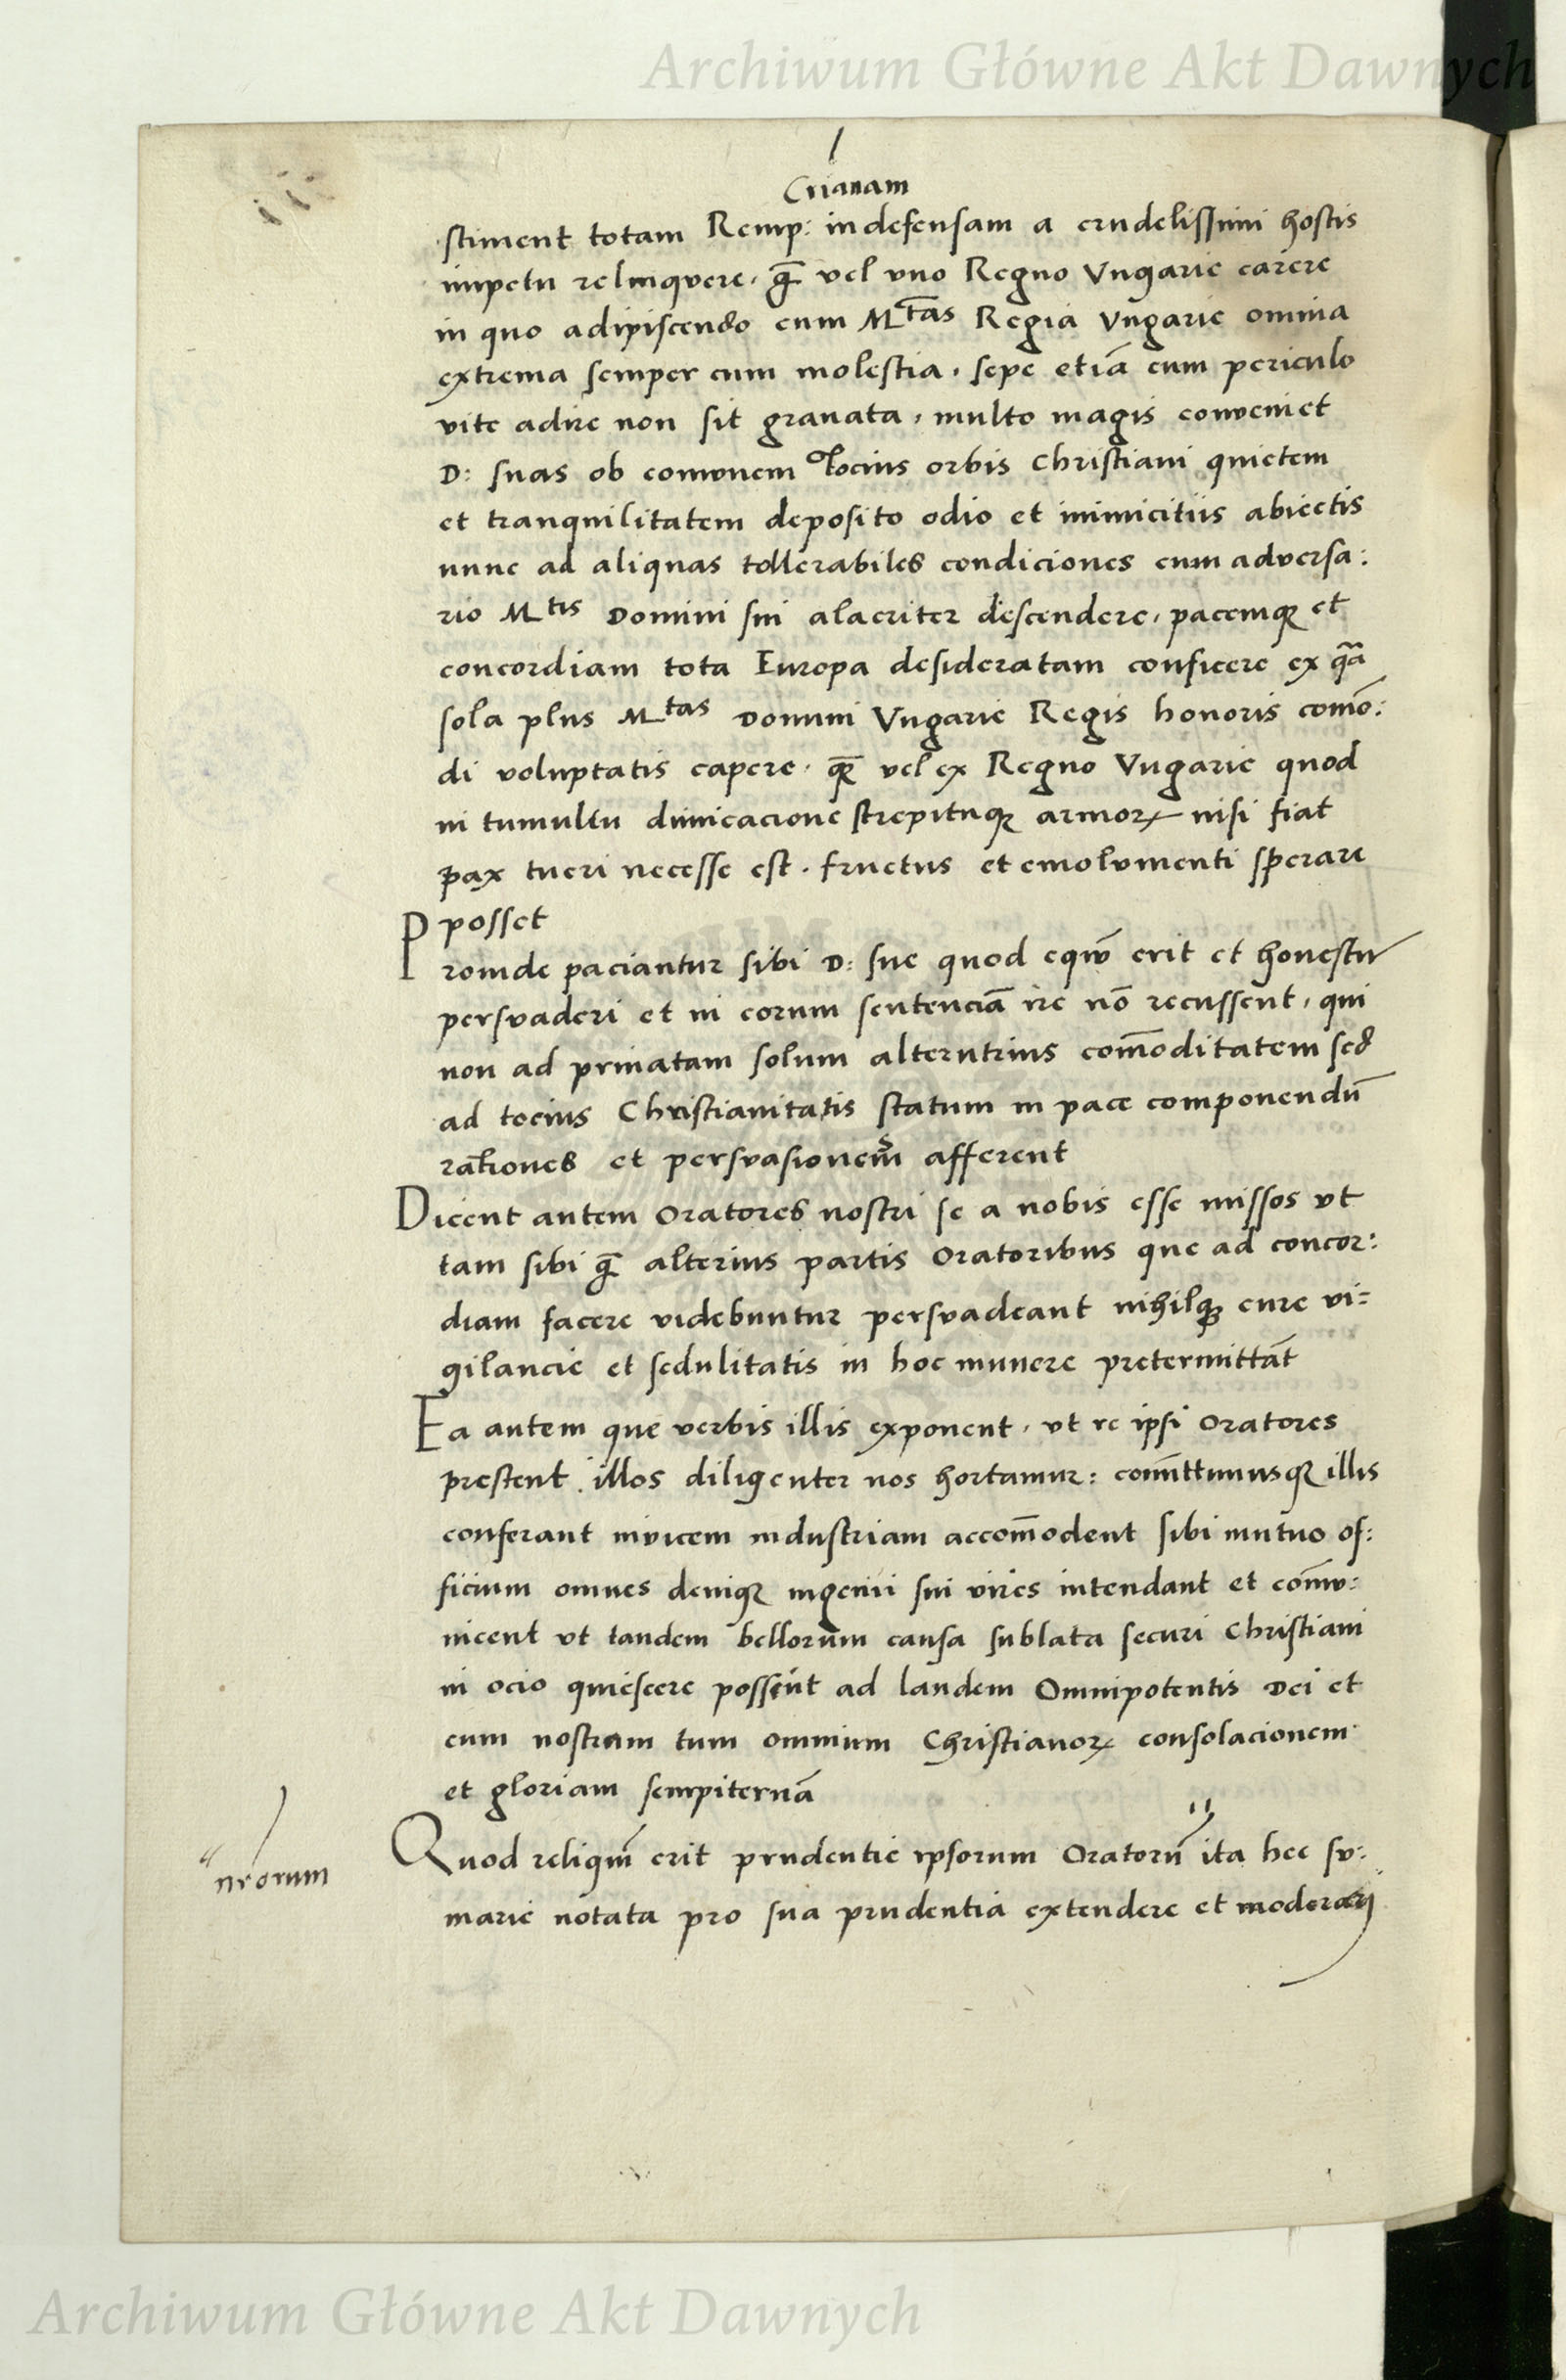 Archiwum Główne Akt Dawnych
Cristianam
stiment totam Remp: indefensam a crudelissimi hostis
impetu relinquere, q̄ vel uno Regno Vngarie carere
in quo adipiscendo cum Mtas Regia Vngarie omnia
extrema semper cum molestia, sepe etiā cum periculo
vite adire non sit grauata, multo magis conveniet
D: suas ob comonem Tocius orbis Christiani quietem
et tranquilitatem deposito odio et inimicitiis abiectis
nunc ad aliquas tollerabiles condiciones cum adversa:
rio Mtis Domini sui alacriter descendere, pacemqꝫ et
concordiam tota Europa desideratam conficere ex qua
sola plus Mtas Domini Vngarie Regis honoris com̄o:
di voluptatis capere, qꝫ vel ex Regno Vngarie quod
in tumultu dimicacione strepituqꝫ armoꝝ nisi fiat
pax tueri necesse est. fructus et emolumenti sperare
posset
Proinde paciantur sibi D: sue quod equū erit et honestū
persvaderi et in eorum sentenciā ire nō recussent, qui
non ad priuatam solum alterutrius com̄oditatem sed
ad tocius Christianitatis statum in pace componendū
rationes et persvasionem̄ afferent
Dicent autem Oratores nostri se a nobis esse missos vt
tam sibi q̄ alterius partis Oratoribus que ad concor:
diam facere videbuntur persvadeant nihilqꝫ cure vi=
gilancie et sedulitatis in hoc munere pretermittāt
Ea autem que verbis illis exponent, vt re ipsi Oratores
prestent. illos diligenter nos hortamur: com̄ittimusqꝫ illis
conferant invicem industriam accom̄odent sibi mutuo of:
ficium omnes deniqꝫ ingenii sui vires intendant et com̄v:
nicent vt tandem bellorum causa sublata securi Christiani
in ocio quiescere possent ad laudem Omnipotentis Dei et
cum nostram tum omnium Christianoꝝ consolacionem
et gloriam sempiternā
Quod reliqm̄ erit prudentie ipsorum Oratorū ita hec sv:
nrorum
marie notata pro sua prudentia extendere et moderari
Archiwum Główne Akt Dawnych